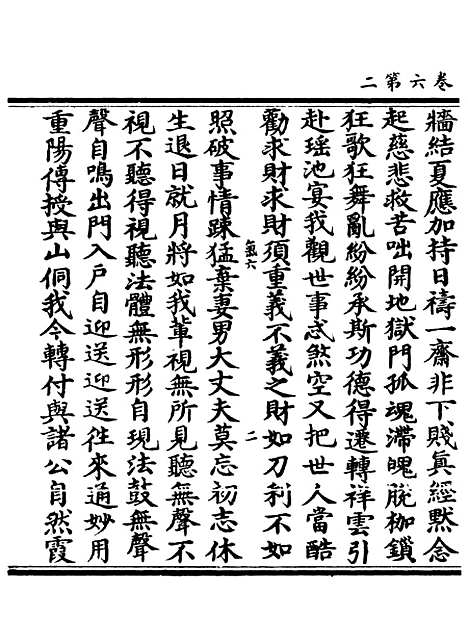 卷六第二
牆結夏應加持日禱一齋非下賤真經默念
起慈悲救苦咄開地獄門孤魂滯魄脫枷鎖
狂歌狂舞亂紛紛承斯功德得遷轉祥雲引
赴瑶池宴我觀世事忒煞空又把世人當酷
勸求財求財須重義不義之財如刀利不如
氫六 二
照破事情踈猛棄妻男大丈夫莫忘初志休
生退日就月將如我軰視無所見聽無聲不
視不聽得視聽法體無形形自現法鼓無聲
聲自鳴出門入户自迎送迎送徃來通妙用
重陽傳授與山侗我今轉付與諸公自然霞